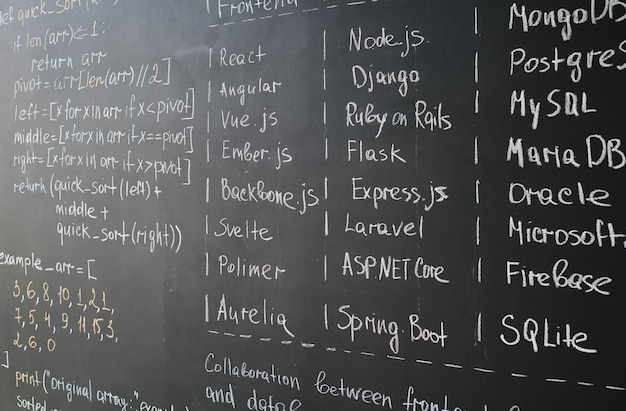 def quick_sort(
if len(arr)≤1:
return arr
pivot=arr[len(arr)//2]
left=[x for x in arr if x<pivot]
middle=[x for x in arr if x==pivot]
right=[x for x in arr if x>pivot]
return(quick_sort(left)+
middle+
quick_sort(right))
example_arr=[
3,6,8,10,1,2,1,
7,5,4,9,11,15,3,
2,6,0
]
print("original array:",
sorted
Frontend
React
Angular
Vue.js
Ember.js
Backbone.js
Svelte
Polimer
Aurelia
Node.js
Django
Ruby on Rails
Flask
Express.js
Laravel
ASP.NET Core
Spring Boot
MongoDB
Postgres
MySQL
MariaDB
Oracle
Microsoft
Firebase
SQLite
Collaboration between front
and